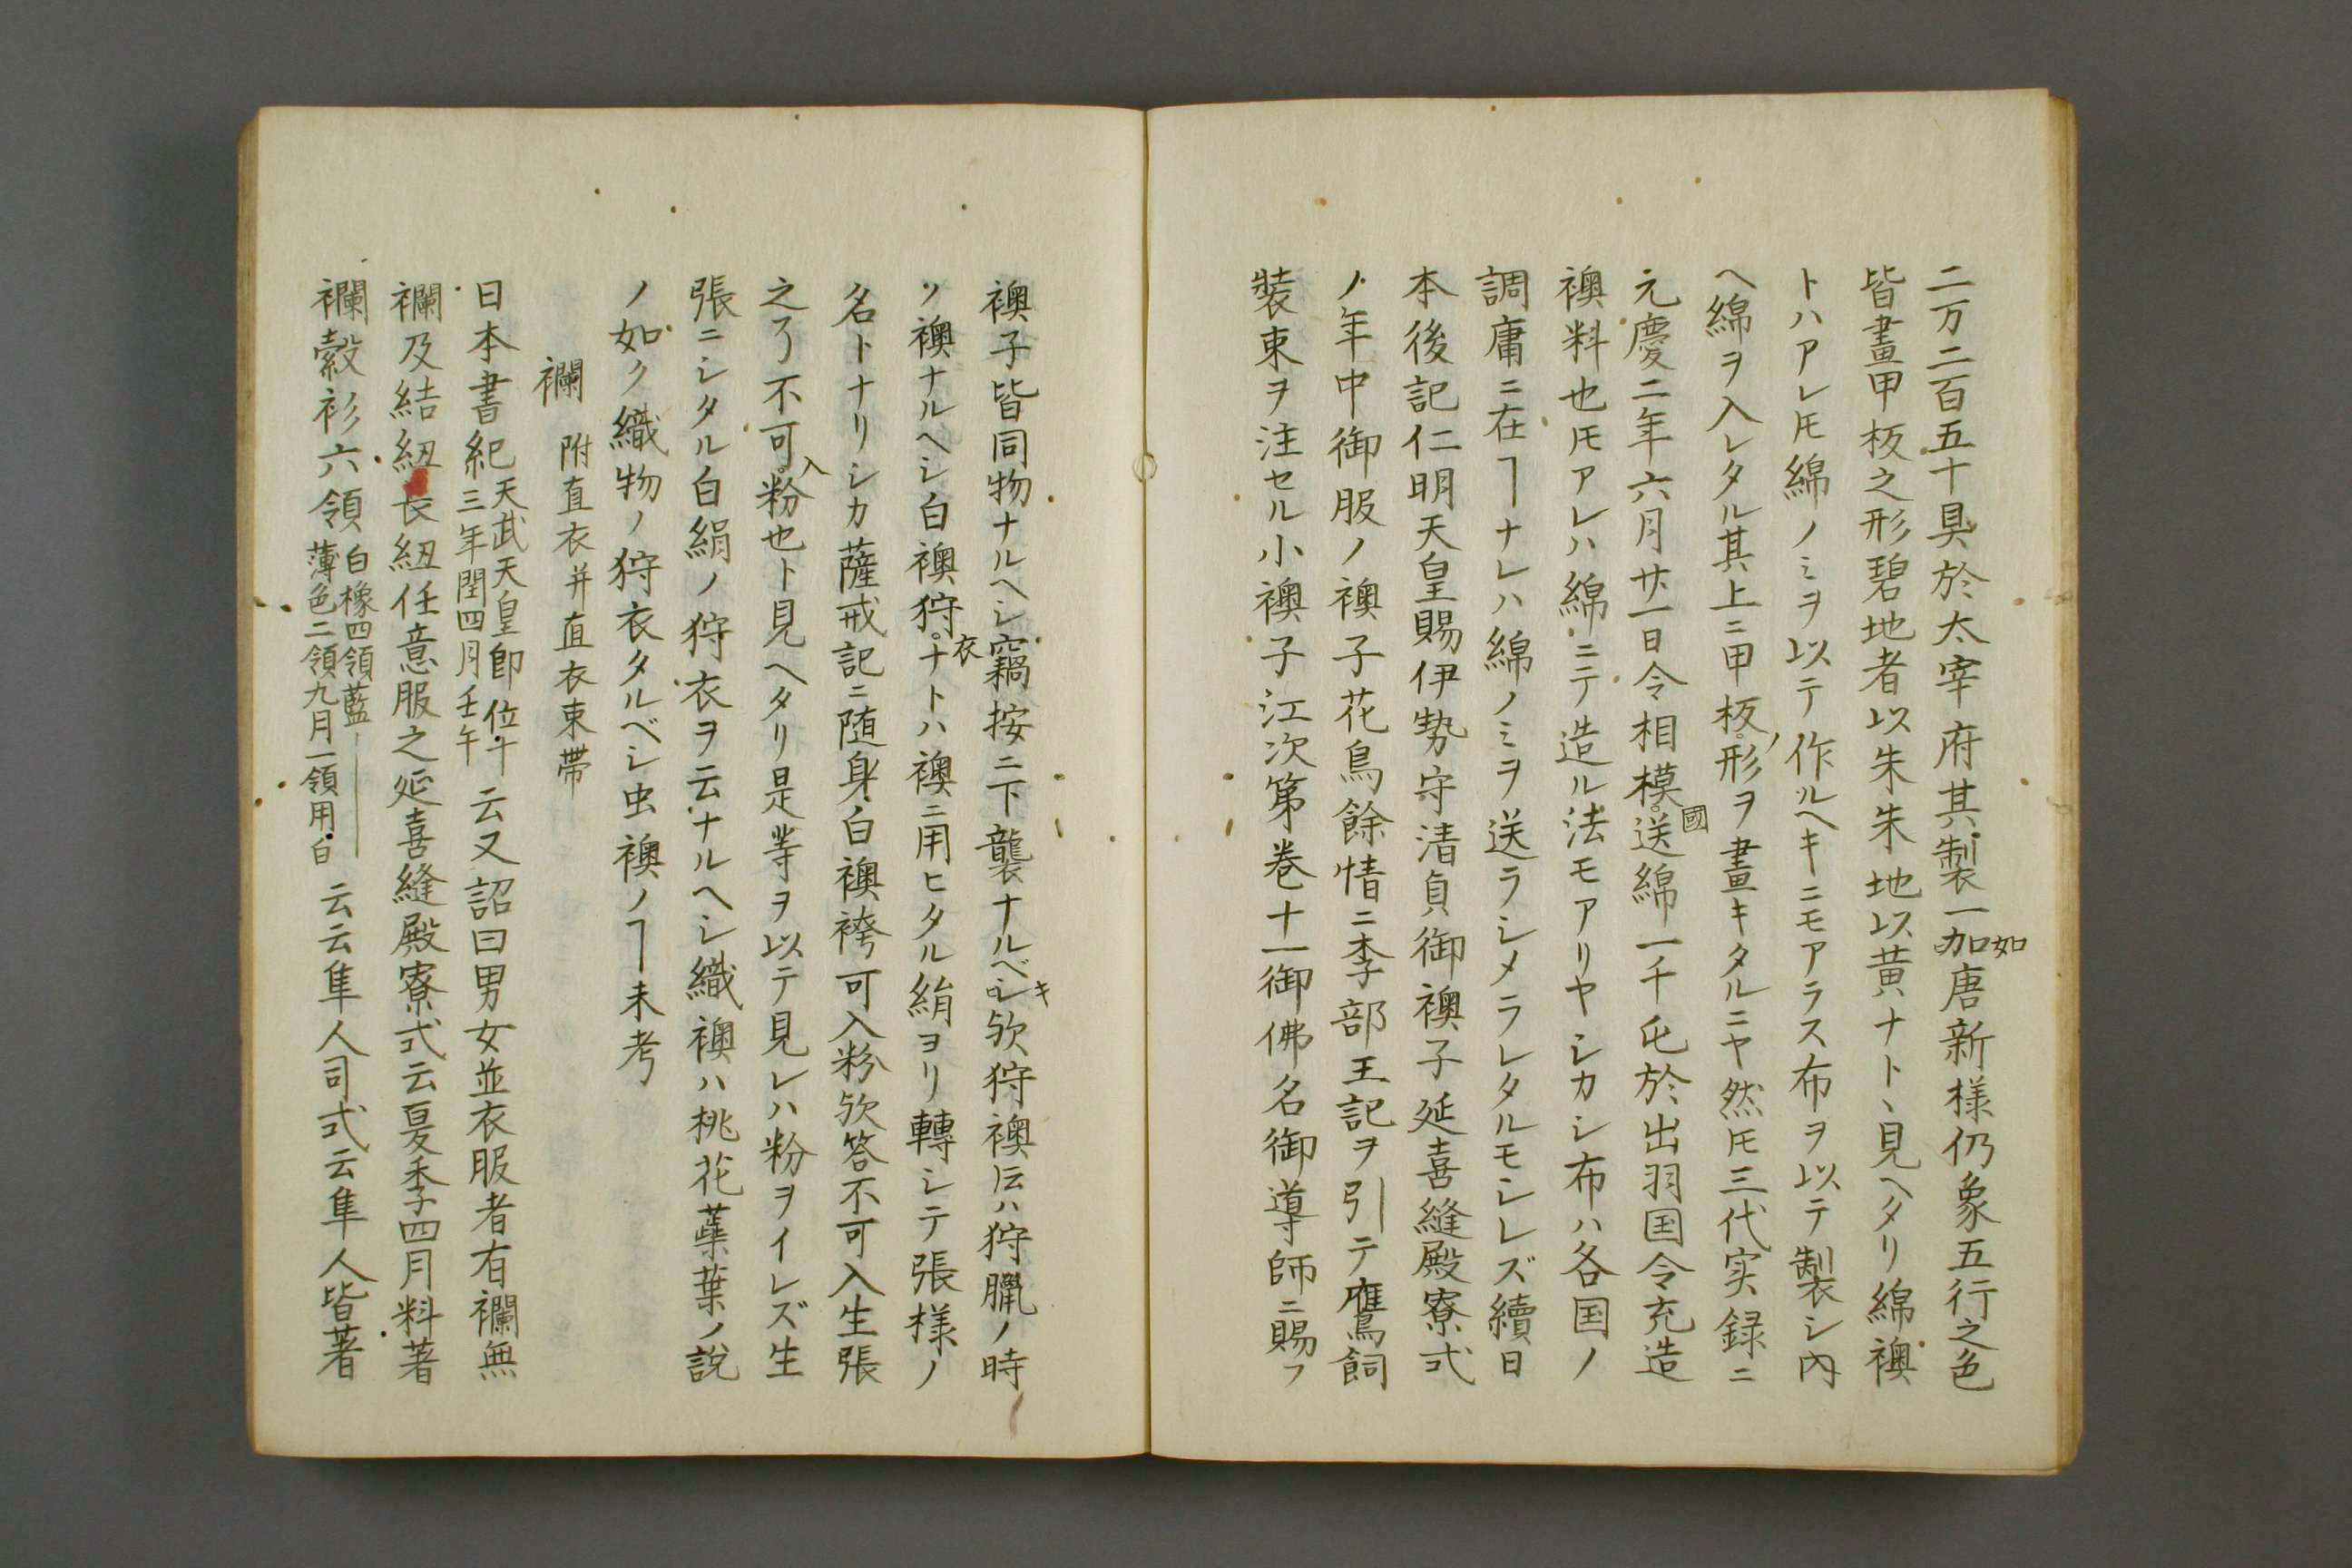 二万二百五十具於太宰府其製一加如唐新様仍象五行之色
皆畫甲板之形碧地者以朱朱地以黄ナト、見ヘタリ綿襖
トハアレ𪜈綿ノミヲ以テ作ルヘキニモアラス布ヲ以テ製シ内
ヘ綿ヲ入レタル其上ニ甲板ノ形ヲ畫キタルニヤ然𪜈三代実録ニ
元慶二年六月廿一日令相模國送綿一千屯於出羽国令充造
襖料也𪜈アレハ綿ニテ造ル法モアリヤシカシ布ハ各国ノ
調庸ニ在ヿナレハ綿ノミヲ送ラシメラレタルモシレズ續日
本後記仁明天皇賜伊勢守清貞御襖子延喜縫殿寮式
ノ年中御服ノ襖子花鳥餘情ニ李部王記ヲ引テ鷹飼
装束ヲ注セル小襖子江次第巻十一御佛名御導師ニ賜フ
襖子皆同物ナルヘシ竊按ニ下襲ナルベシキ欤狩襖𪜈ハ狩臘ノ時
ノ襖ナルヘシ白襖狩衣ナトハ襖ニ用ヒタル絹ヨリ轉シテ張様ノ
名トナリシカ薩戒記ニ随身白襖袴可入粉欤答不可入生張
之了不可入粉也ト見ヘタリ是等ヲ以テ見レハ粉ヲイレズ生
張ニシタル白絹ノ狩衣ヲ云ナルヘシ織襖ハ桃花蘂葉ノ説
ノ如ク織物ノ狩衣タルベシ虫襖ノヿ未考
襴 附直衣并直衣束帶
日本書紀天武天皇即位十三年閏四月壬午云又詔曰男女並衣服者有襴無
襴及結紐長紐任意服之延喜縫殿寮式云夏季四月料著
襴縠衫六領白橡四領藍薄色二領九月一領用白云云隼人司式云隼人皆著